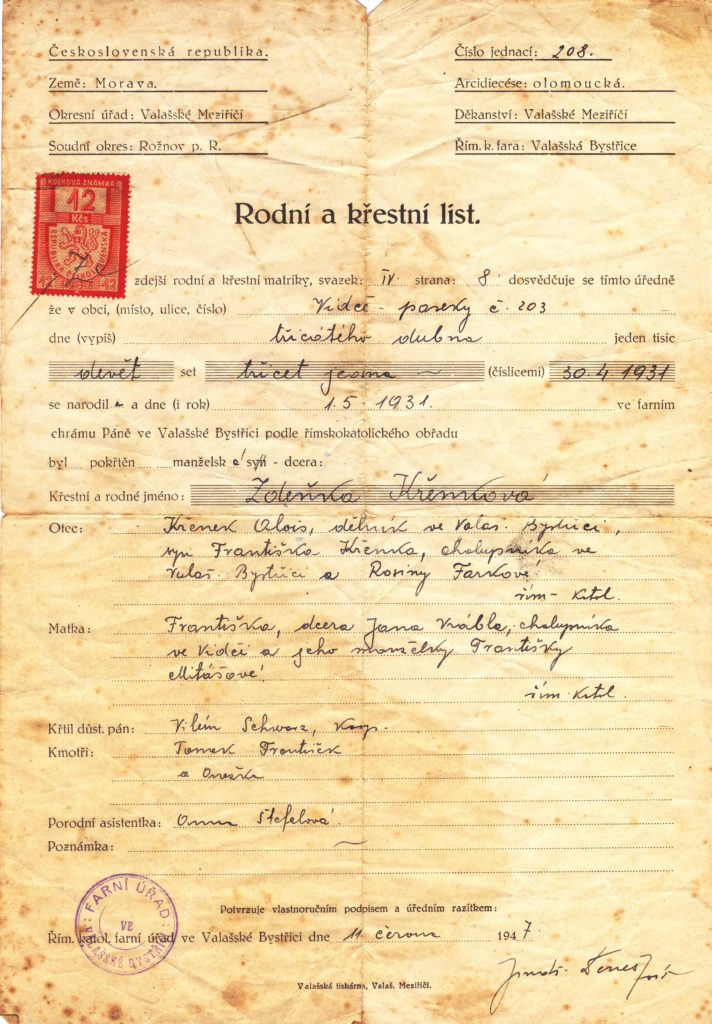 Československá republika.
Číslo jednací: 208.
Země: Morava.
Arcidiecése: olomoucká.
Okresní úřad: Valašské Meziříčí
Děkanství: Valašské Meziříčí
Soudní okres: Rožnov p. R.
Řím. k. fara: Valašská Bystřice
KOLKOVÁ ZNÁMKA
12
Kčs
REPUBLIKA ČESKOSLOVENSKÁ
Rodní a křestní list.
Ze zdejší rodní a křestní matriky, svazek: IV strana: 8 dosvědčuje se tímto úředně
že v obci, (místo, ulice, číslo) Vidče - paseky č. 203
dne (vypiš) třicátého dubna jeden tisíc
devět set třicet jedna ~ (číslicemi) 30.4.1931
se narodil a a dne (i rok) 1.5.1931. ve farním
chrámu Páně ve Valašské Bystřici podle římskokatolického obřadu
byl pokřtěn manželsk á syn - dcera:
Křestní a rodné jméno: Zdeňka Křenková
Otec: Křenek Alois, dělník ve Valaš. Bystřici,
syn Františka Křenka, chalupníka ve
Valaš. Bystřici a Rosiny Farkové.
řím-katol.
Matka: Františka, dcera Jana Vrábla, chalupníka
ve Vidči a jeho manželky Františky
Mitášové.
řím-katol.
Křtil důst. pán: Vilém Schwarz, koop.
Kmotři: Tomek František
a Anežka
Porodní asistentka: Anna Štefelová.
Poznámka: ~
Potvrzuje vlastnoručním podpisem a úředním razítkem:
FARNÍ ÚŘAD
VE
VALAŠSKÉ BYSTŘICI
Řím. katol. farní úřad ve Valašské Bystřici dne 11. června 1947.
Valašská tiskárna, Valaš. Meziříčí.